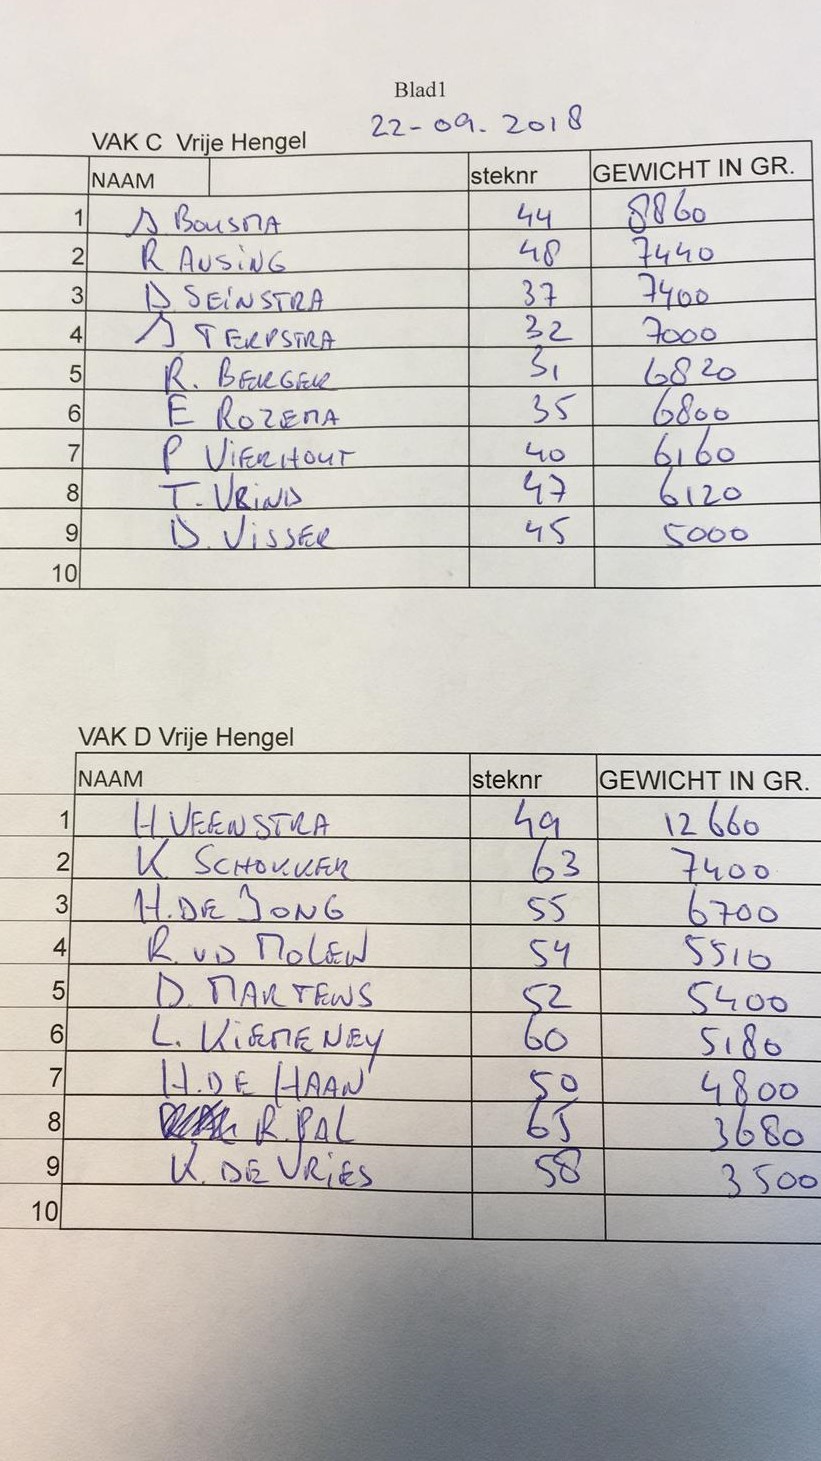 Blad1
22-09-2018
VAK C Vrije Hengel
NAAM steknr GEWICHT IN GR.
1 BOUSMA 44 8860
2 R AUSING 48 7440
3 D SEINSTRA 37 7400
4 TERPSTRA 32 7000
5 R. BERGER 31 6820
6 E ROZEMA 35 6800
7 P VIERHOUT 40 6160
8 T. VRIND 47 6120
9 D. VISSER 45 5000
10
VAK D Vrije Hengel
NAAM steknr GEWICHT IN GR.
1 H VEENSTRA 49 12660
2 K. SCHOKKER 63 7400
3 H. DE JONG 55 6700
4 R. VD MOLEN 54 5510
5 D. MARTENS 52 5400
6 L. KIEMENEY 60 5180
7 H. DE HAAN 50 4800
8 R. PAL 65 3680
9 K. DE VRIES 58 3500
10